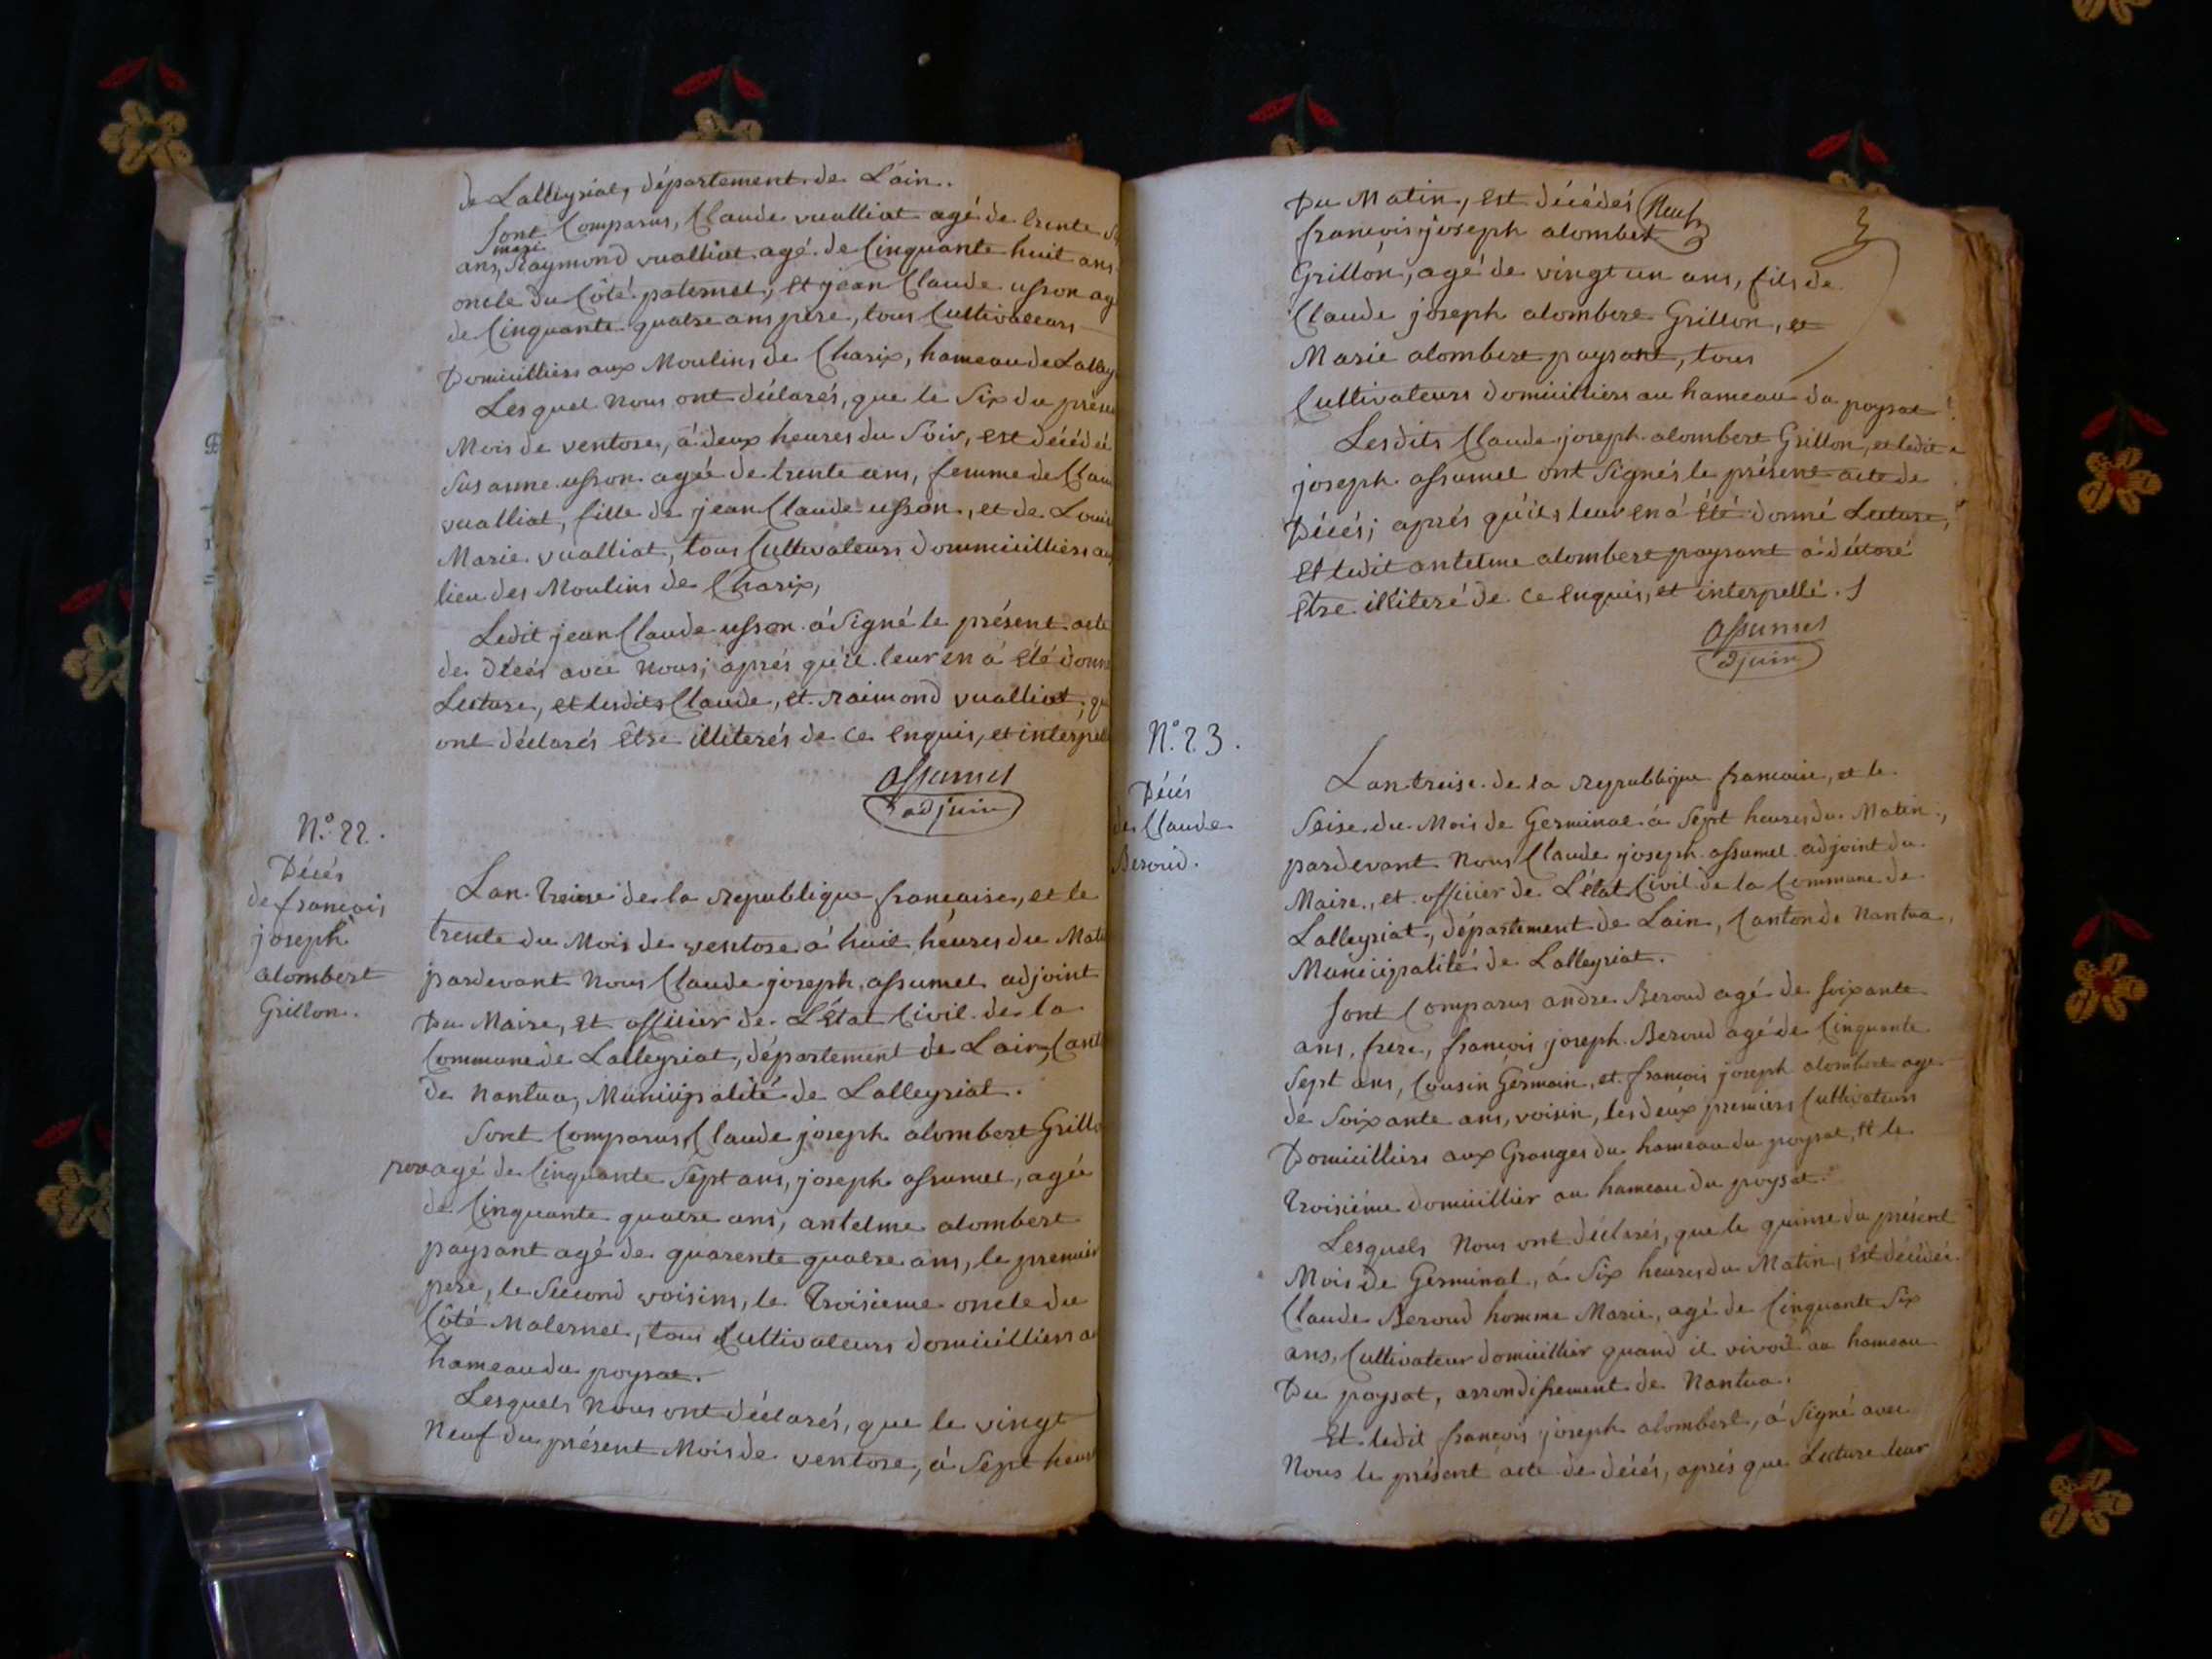 de Lalleyriat, département de Lain.
Sont Comparus, Claude vualliat agé de trente
mari
ans, Raymond vualliat agé de Cinquante huit ans
oncle du Côté paternel, et jean Claude usson ag
de Cinquante quatre ans pere, tous Cultivateurs
Domicilliers aux Moulins de Charix, hameau de Lalley
Lesquel Nous ont déclarés, que le Six du prése
Mois de ventose, à deux heures du Soir, est décédée
Susanne usson agée de trente ans, femme de Clau
vualliat, fille de jean Claude usson, et de Louis
Marie vualliat, tous Cultivateurs dommicilliers au
lieu des Moulins de Charix,
Ledit jean Claude usson à Signé le présent acte
de déces avec Nous; aprés qu'il leur en à été donn
Lecture, et lesdits Claude, et raimond vualliat, qu
ont déclarés être illiterés de ce enquis, et interpell
assumel
adjuin
N.° 22.
Décés
de francois
joseph
alombert
Grillon.
Lan treise de la republique françaire, et le
trente du Mois de ventose à huit heures du Mat
pardevant Nous Claude joseph assumel adjoint
Du Maire, et officier de L'état Civil de la
Commune de Lalleyriat, département de Lain, Cant
de Nantua, Municipalité de Lalleyriat.
Sont Comparus, Claude joseph alombert Grill
pere agé de Cinquante Sept ans, joseph assumel, agée
de Cinquante quatre ans, antelme alombert
paysant agé de quarente quatre ans, le premier
pere, le Second voisins, le troisieme oncle du
Côté Maternel, tous Cultivateurs domicilliers a
hameau du poysat.
Lesquels Nous ont déclarés, que le vingt
Neuf du présent Mois de ventose, à Sept heur
Du Matin, est décédés
Neuf
francois joseph alombert
Grillon, agé de vingt un ans, fils de
Claude joseph alombert Grillon, et
Marie alombert paysant, tous
Cultivateurs domicilliers au hameau du poysat
Lesdits Claude joseph alombert Grillon, et ledit
joseph assumel ont Signés le présent acte de
Décés; aprés qu'ils leur en à été donné Lecture,
et ledit antelme alombert paysant à déclaré
être illiteré de ce enquis, et interpellé.
assumel
adjuin
N.° 23.
Décés
de Claude
Beroud.
Lan treise de la republique francaise, et le
Seise du Mois de Germinal à Sept heures du Matin,
pardevant Nous Claude joseph assumel adjoint du
Maire, et officier de L'état Civil de la Commune de
Lalleyriat, département de Lain, Canton de Nantua,
Municipalité de Lalleyriat.
Sont Comparus andre Beroud agé de soixante
ans, frere, francois joseph Beroud agé de Cinquante
Sept ans, Cousin Germain, et francois joseph alombert age
de Soixante ans, voisin, les deux premiers Cultivateurs
Domicilliers aux Granges du hameau du poysat, et le
troisiéme domicillier au hameau du poysat.
Lesquels Nous ont déclarés, que le quinse du présent
Mois de Germinal, à Six heures du Matin, est décédé
Claude Beroud homme Marie, agé de Cinquante Six
ans, Cultivateur domicillier quand il vivoit au hameau
Du poysat, arrondissement de Nantua.
Et ledit francois joseph alombert, à Signé avec
Nous le présent acte de décés, aprés que Lecture leur